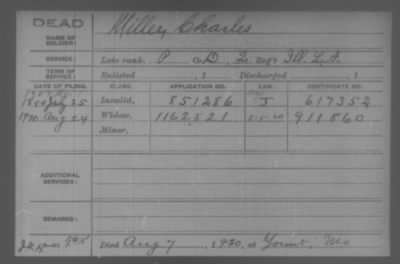 DEAD
Miller, Charles
NAME OF SOLDIER:
SERVICE: Late rank, P Co. D, 2 Reg't Ill. L.A.
TERM OF SERVICE: Enlisted , 1 Discharged , 1
DATE OF FILING. CLASS. APPLICATION NO. LAW. CERTIFICATE NO.
July 25 Invalid, 851286 J 617352
1920 Aug 24 Widow, 1162,521 911860
Minor,
ADDITIONAL SERVICES:
REMARKS:
Died Aug 7, 1920, at Yount, Mo